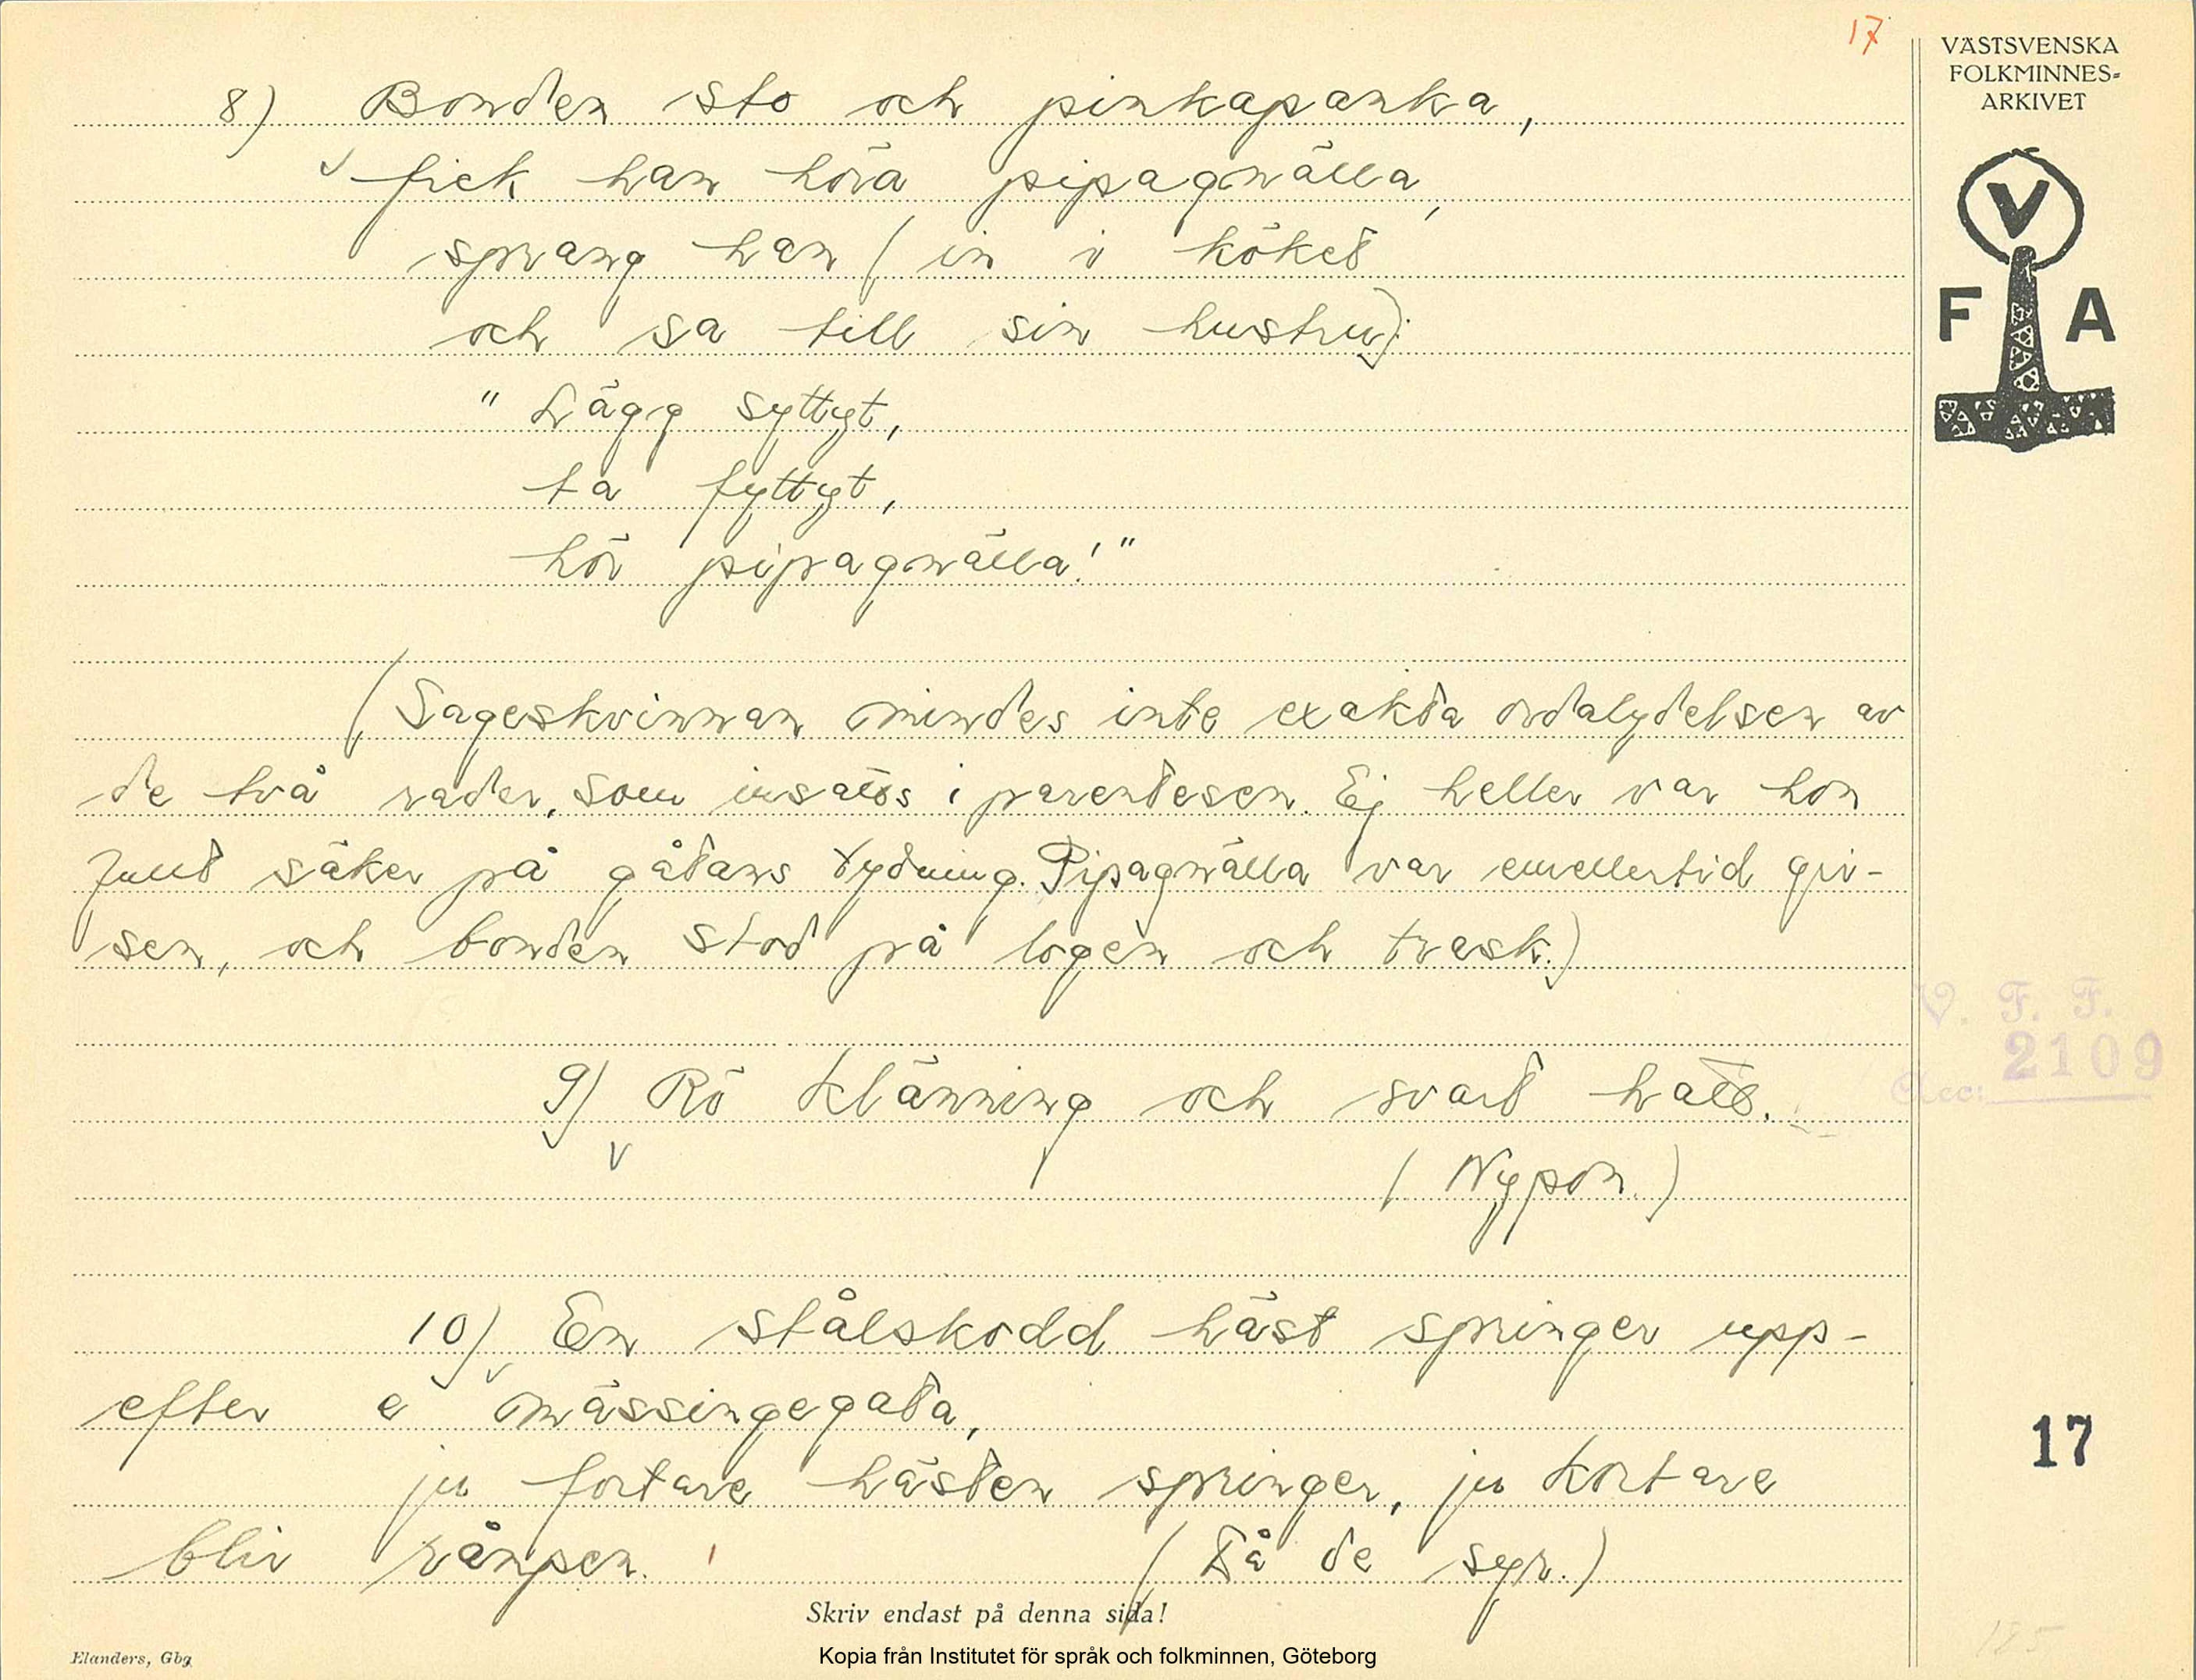 17
VÄSTSVENSKA
FOLKMINNES-
ARKIVET
V
F A
8) Bonden sto och pinkapanka,
fick han höra pipagnälla,
sprang han (in i köket
och sa till sin hustru):
"Lägg syttyt,
ta fyttyt,
hör pipagnälla!"
(Sageskvinnan mindes inte exakta ordalydelsen av
de två rader, som insatts i parentesen. Ej heller var hon
fullt säker på gåtans tydning. Pipagnälla var emellertid gri-
sen, och bonden stod på logen och trask.)
V. F. F.
Acc: 2109
9) Rö klänning och svart hatt.
(Nypon.)
10) En stålskodd häst springer upp-
efter e mässingegata,
ju fortare hästen springer, ju kortare
blir rånpen.
(Då de syr.)
17
Skriv endast på denna sida!
Elanders, Gbg
Kopia från Institutet för språk och folkminnen, Göteborg
185